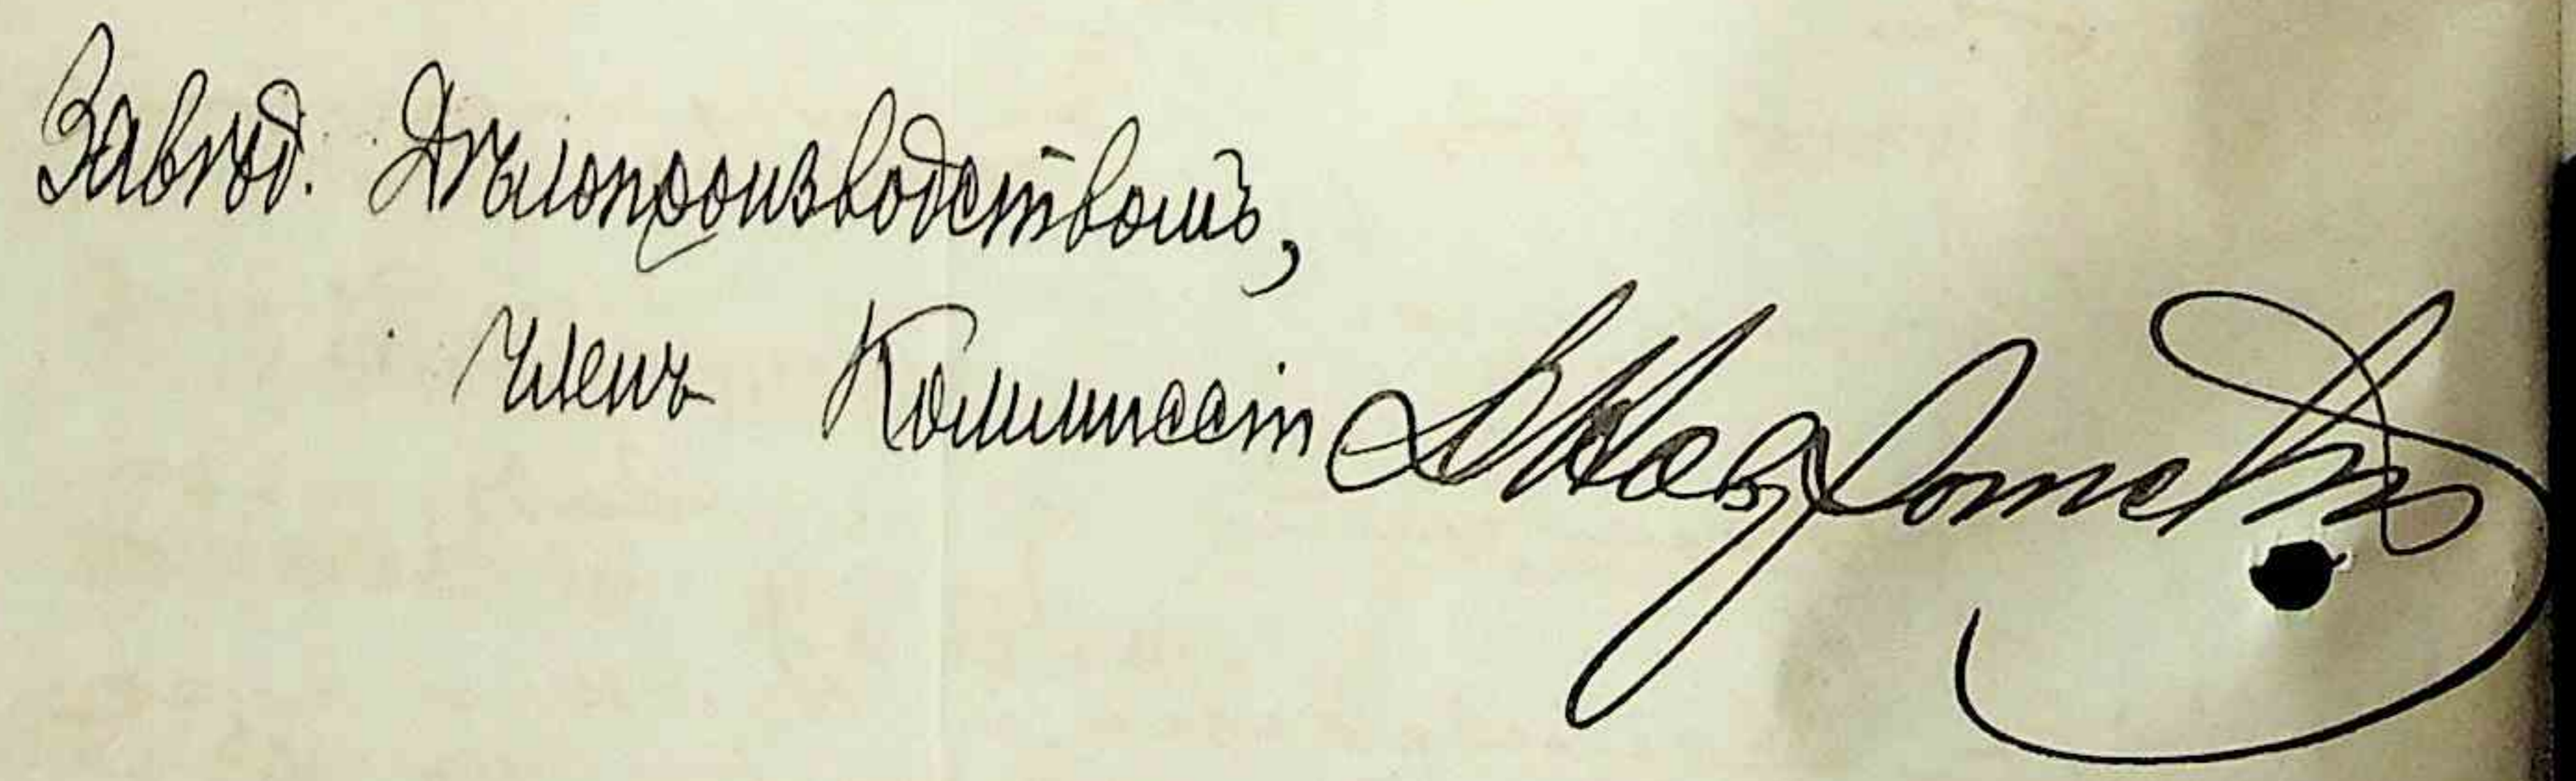 Завѣд. Дѣлопроизводствомъ,
Членъ Коммиссіи